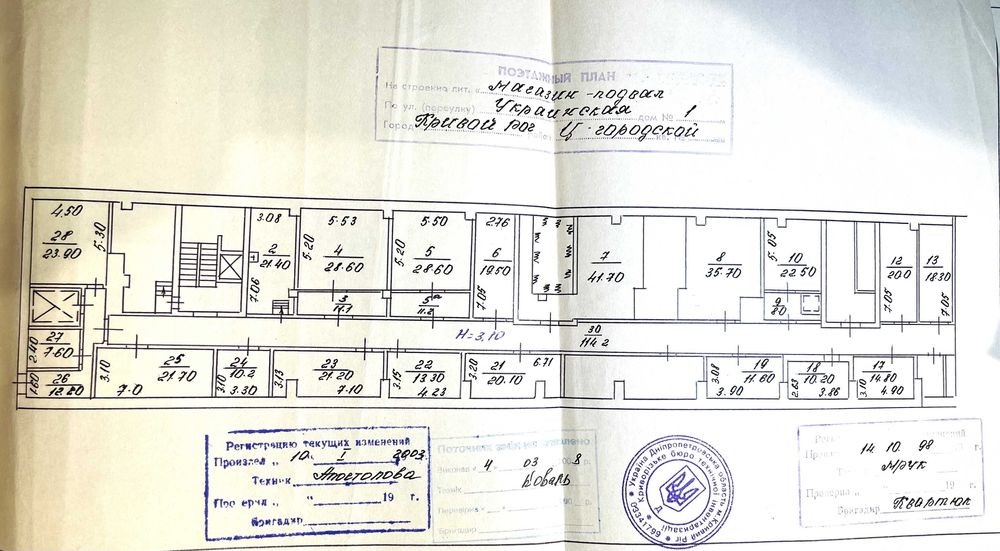 ПОЭТАЖНЫЙ ПЛАН
На строение лит. „ Магазин-подвал
По ул. (переулку) Украинская дом № 1
Город Кривой рог Ц-городской
4.50
28
23.90
5.30
3.08
2
21.40
7.06
5.53
5.20
4
28.60
3
11.1
5.50
5.20
5
28.60
5а
11.2
2.76
6
19.50
7.05
7
41.70
8
35.70
5.05
10
22.50
9
8.0
12
20.0
7.05
13
18.30
7.05
H=3,10
30
114.2
27
7.60
2.40
26
12.20
1.60
3.10
25
21.70
7.0
24
10.2
3.10
3.30
23
21.20
3.13
7.10
22
13.30
3.15
4.23
3.20
21
20.10
6.71
19
11.60
3.08
3.90
18
10.20
2.63
3.86
17
14.80
3.10
4.90
Регистрацию текущих изменений
Произвел „ 10 „ I 2003
Техник Апостолова
Проверил „ “ 19 г.
Бригадир
Поточних змін не виявлено
Виконав „ 4 “ 03 8 р.
Технік Коваль
Перевірив
Бригадир
Україна Дніпропетровська область м. Кривий Ріг
Криворізьке бюро технічної інвентаризації
03341769
14 10. 98 г.
Мрук
Проверил 19 г.
Бригадир